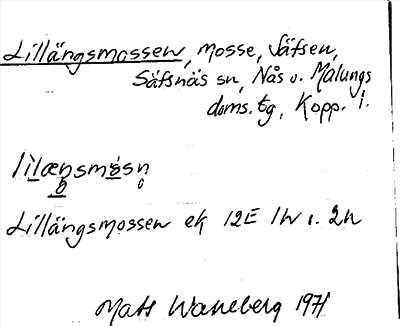 Lillängsmossen, mosse, Säfsen,
Säfsnäs sn, Nås o. Malungs
doms. tg, Kopp. l.
Lillängsmossen ek 12E 1h o. 2h
Mats Wanneberg 1971